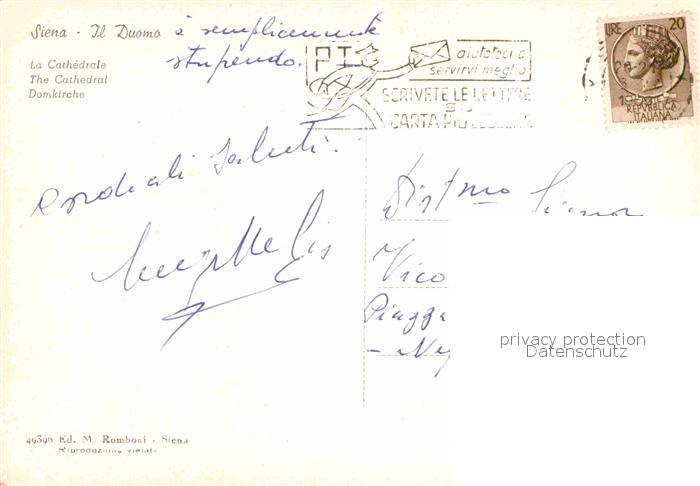 Siena - Il Duomo è semplicemente
stupendo.
La Cathédrale
The Cathedral
Domkirche
PT
aiutateci a
servirvi meglio
SCRIVETE LE LETTERE
SU
CARTA PIÙ
LIRE 20
REPVBBLICA
ITALIANA
Cordiali saluti.
Dist.mo Signor
Vico
Piazza
privacy protection
Datenschutz
49396 Ed. M. Romboni - Siena
Riproduzione vietata